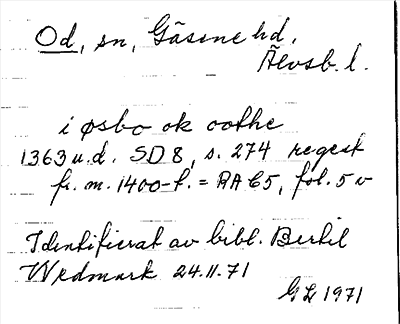 Od, sn, Gäsene hd.
Älvsb. l.
i øsbo ok oothe
1363 u.d. SD 8, s. 274 regest
fr. m. 1400-t. = RA C5, fol. 5 v
Identifierat av bibl. Bertil
Wedmark 24.11.71
GL 1971